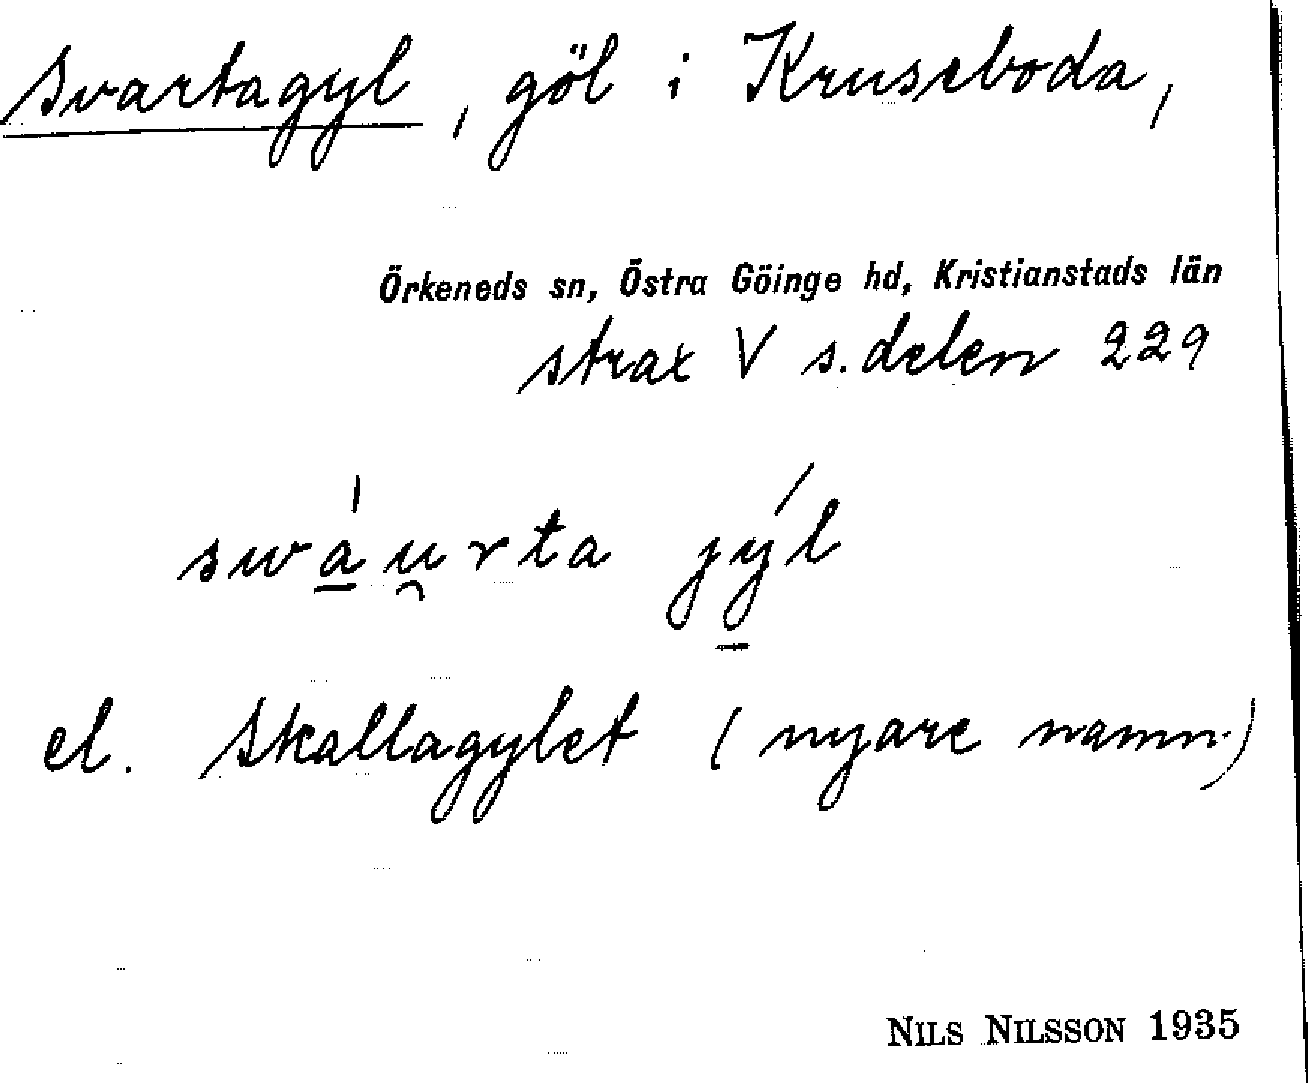 Svartagyl, göl i Kruseboda,
Örkeneds sn, Östra Göinge hd, Kristianstads län
strax V s. delen 229
swá̱u̯rta jý̱l
el. Skallagylet (nyare namn.)
NILS NILSSON 1935